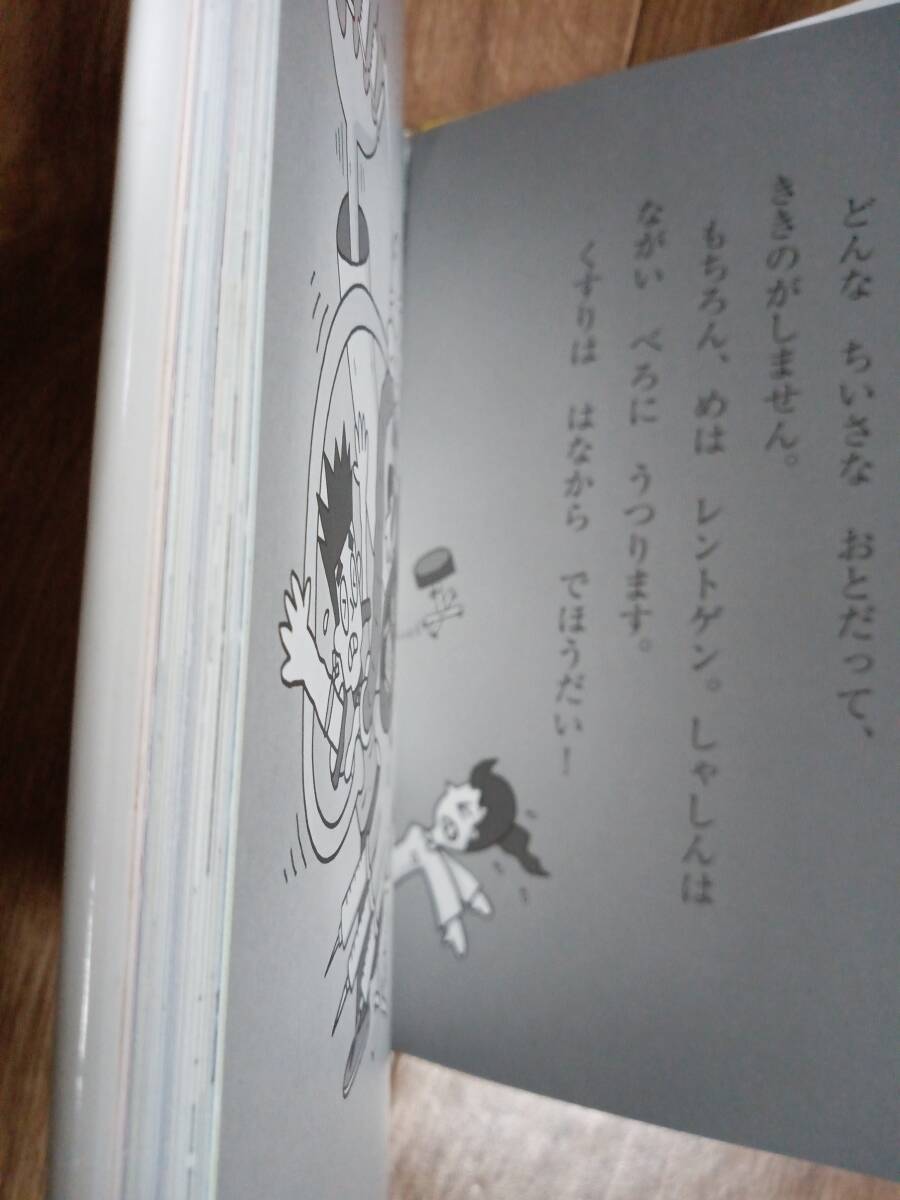 どんな ちいさな おとだって、
ききのがしません。
もちろん、めは レントゲン。しゃしんは
ながい べろに うつります。
くすりは はなから でほうだい!